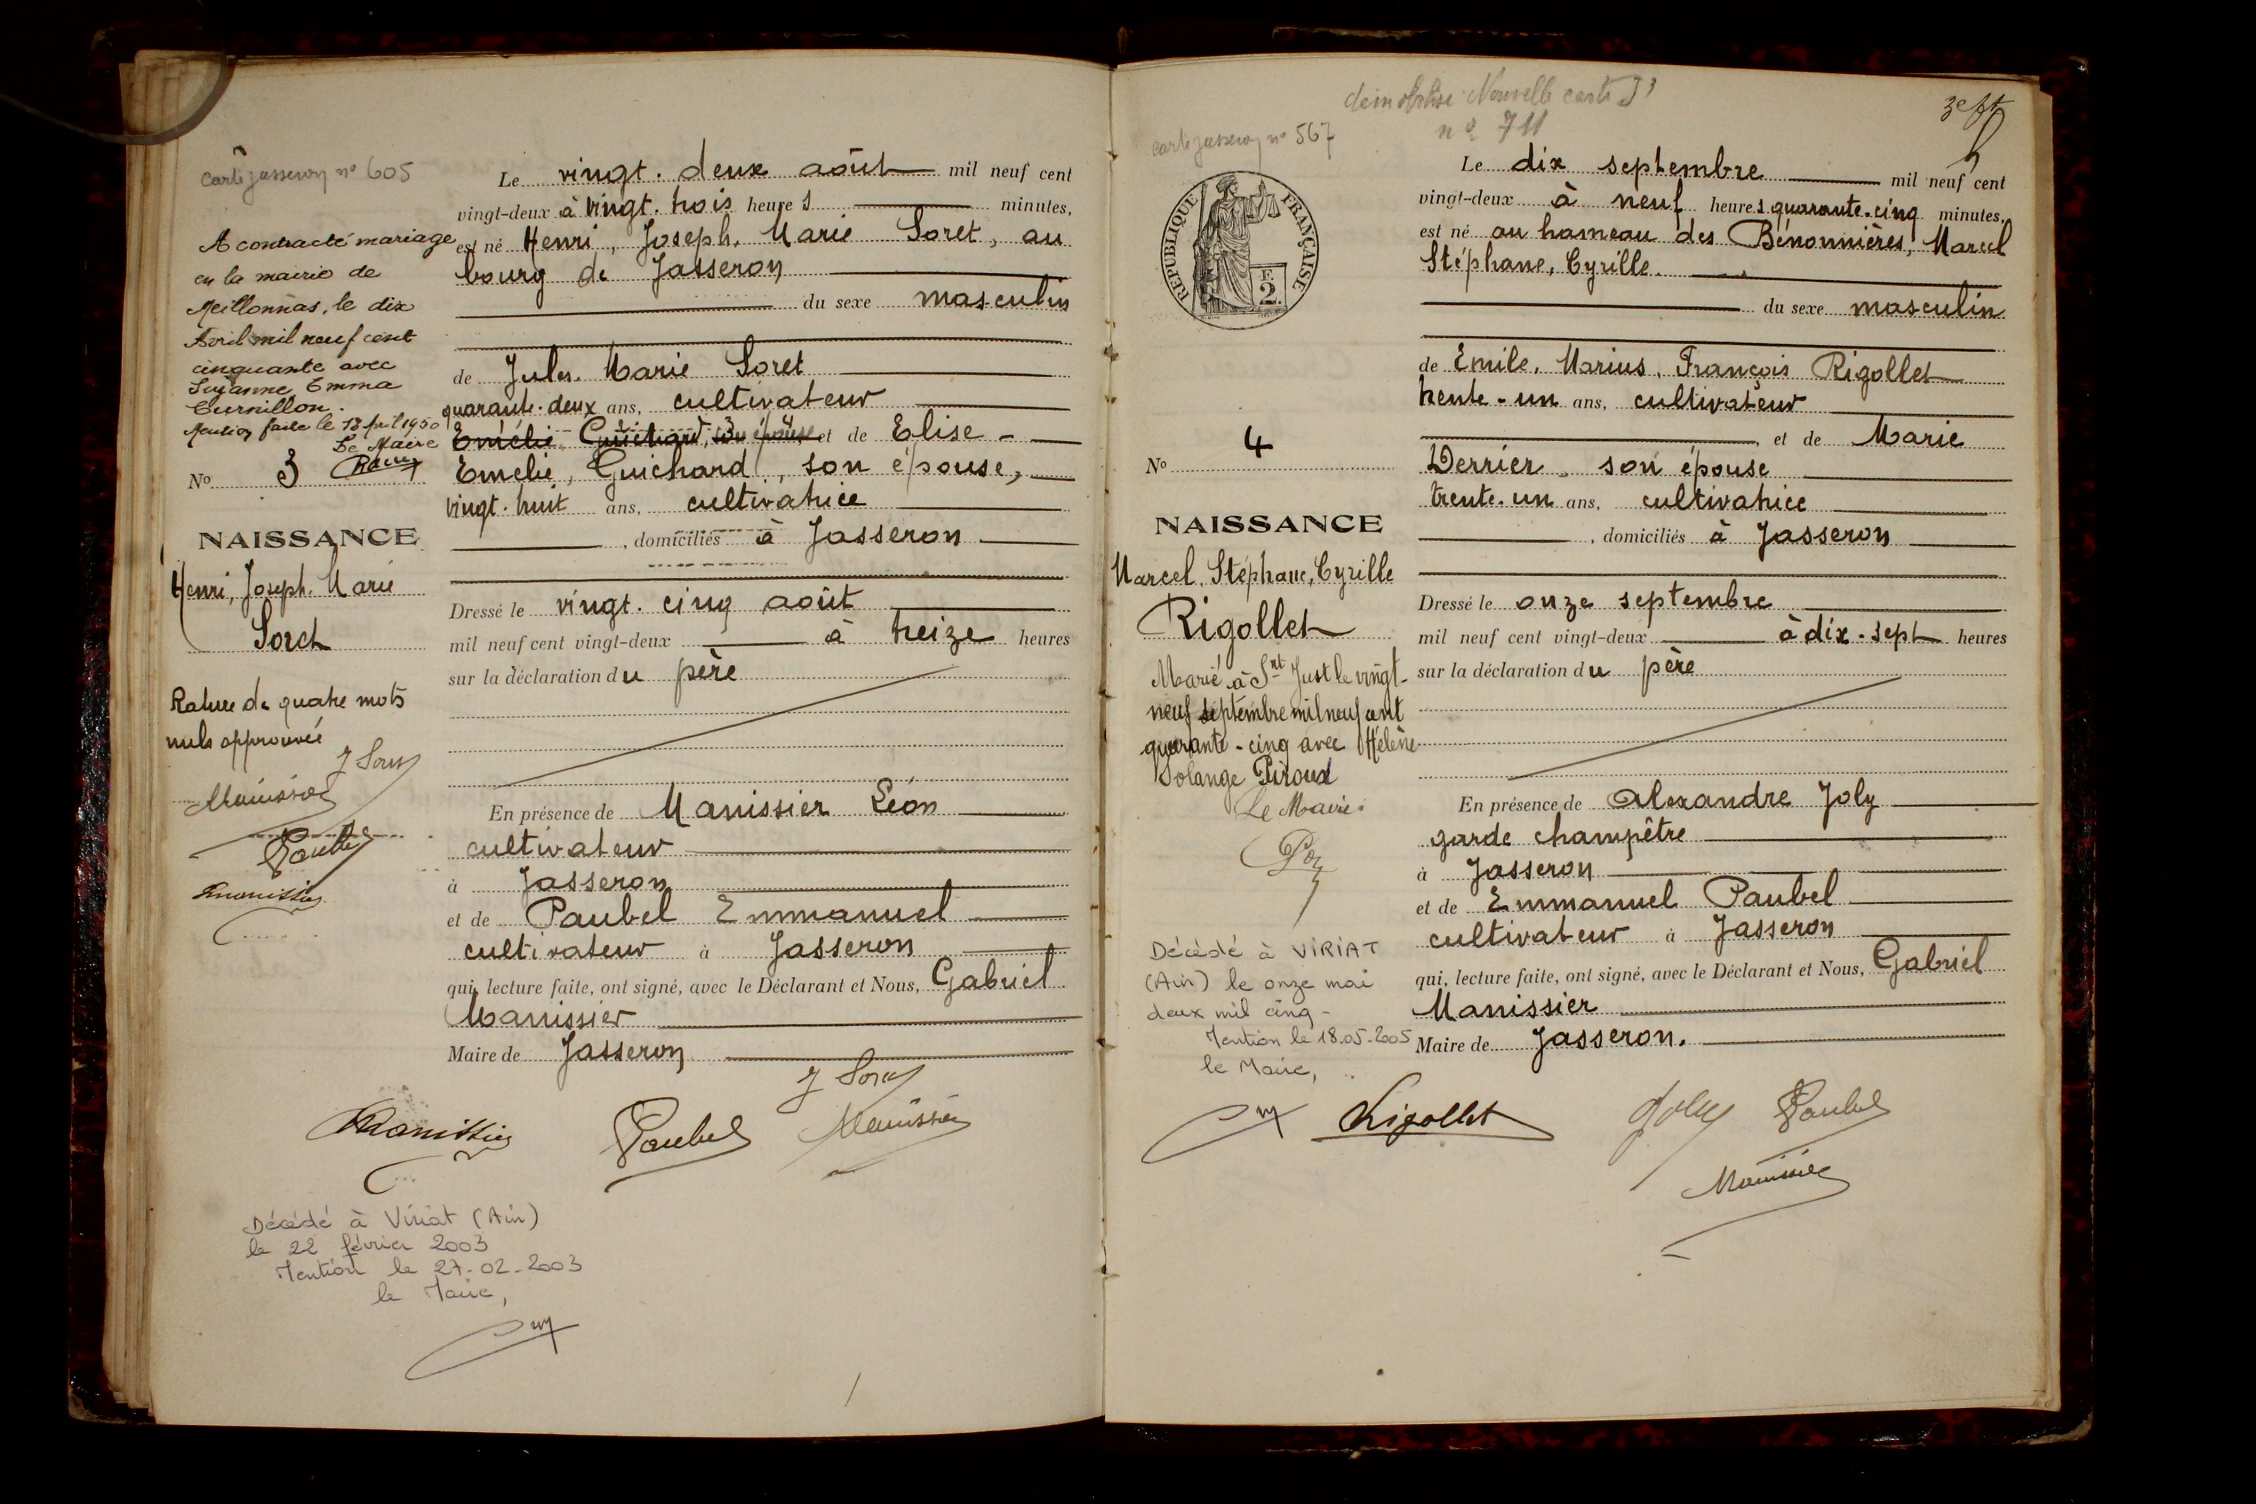 carte Jasseron nº 605
A contracté mariage
en la mairie de
Meillonnas, le dix
Avril mil neuf cent
cinquante avec
Suzanne, Emma
Curnillon.
Mention faite le 13 Avril 1950
Le Maire
No 3
NAISSANCE
Henri, Joseph, Marie
Soret
Rature de quatre mots
nuls approuvée
J Soret
Manissier
Paubel
Manissier
Le vingt-deux août mil neuf cent
vingt-deux à vingt-trois heures minutes,
est né Henri, Joseph, Marie Soret, au
bourg de Jasseron
du sexe masculin
de Jules Marie Soret
quarante-deux ans, cultivateur
Emélie Guichard, son épouse et de Elise
Emélie, Guichard, son épouse,
vingt-huit ans, cultivatrice
, domiciliés à Jasseron
Dressé le vingt-cinq août
mil neuf cent vingt-deux à treize heures
sur la déclaration du père
En présence de Manissier Léon
cultivateur
à Jasseron
et de Paubel Emmanuel
cultivateur à Jasseron
qui, lecture faite, ont signé, avec le Déclarant et Nous, Gabriel
Manissier
Maire de Jasseron
J Soret
Manissier Paubel Manissier
Décédé à Viriat (Ain)
le 22 février 2003
Mention le 27-02-2003
le Maire,
Nouvelle carte
nº 711
carte Jasseron nº 567
RÉPUBLIQUE FRANÇAISE
F.
2.
No 4
NAISSANCE
Marcel, Stéphane, Cyrille
Rigollet
Marié à St Just le vingt-
neuf septembre mil neuf cent
quarante-cinq avec Hélène
Solange Piroud
Le Maire
Décédé à VIRIAT
(Ain) le onze mai
deux mil cinq-
Mention le 18.05.2005
le Maire,
Le dix septembre mil neuf cent
vingt-deux à neuf heures quarante-cinq minutes,
est né au hameau des Bénonnières, Marcel
Stéphane, Cyrille.
du sexe masculin
de Emile, Marius, François Rigollet
trente-un ans, cultivateur
, et de Marie
Derrier, son épouse
trente-un ans, cultivatrice
, domiciliés à Jasseron
Dressé le onze septembre
mil neuf cent vingt-deux à dix-sept heures
sur la déclaration du père
En présence de Alexandre Joly
garde champêtre
à Jasseron
et de Emmanuel Paubel
cultivateur à Jasseron
qui, lecture faite, ont signé, avec le Déclarant et Nous, Gabriel
Manissier
Maire de Jasseron.
Rigollet Joly Paubel
Manissier